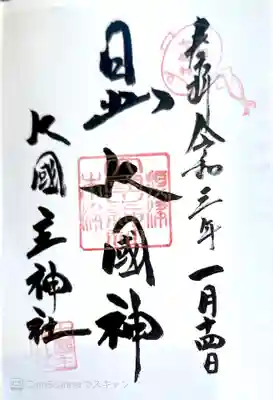 奉拝 令和三年一月十四日
日出大國神
大國主神社
CamScannerでスキャン